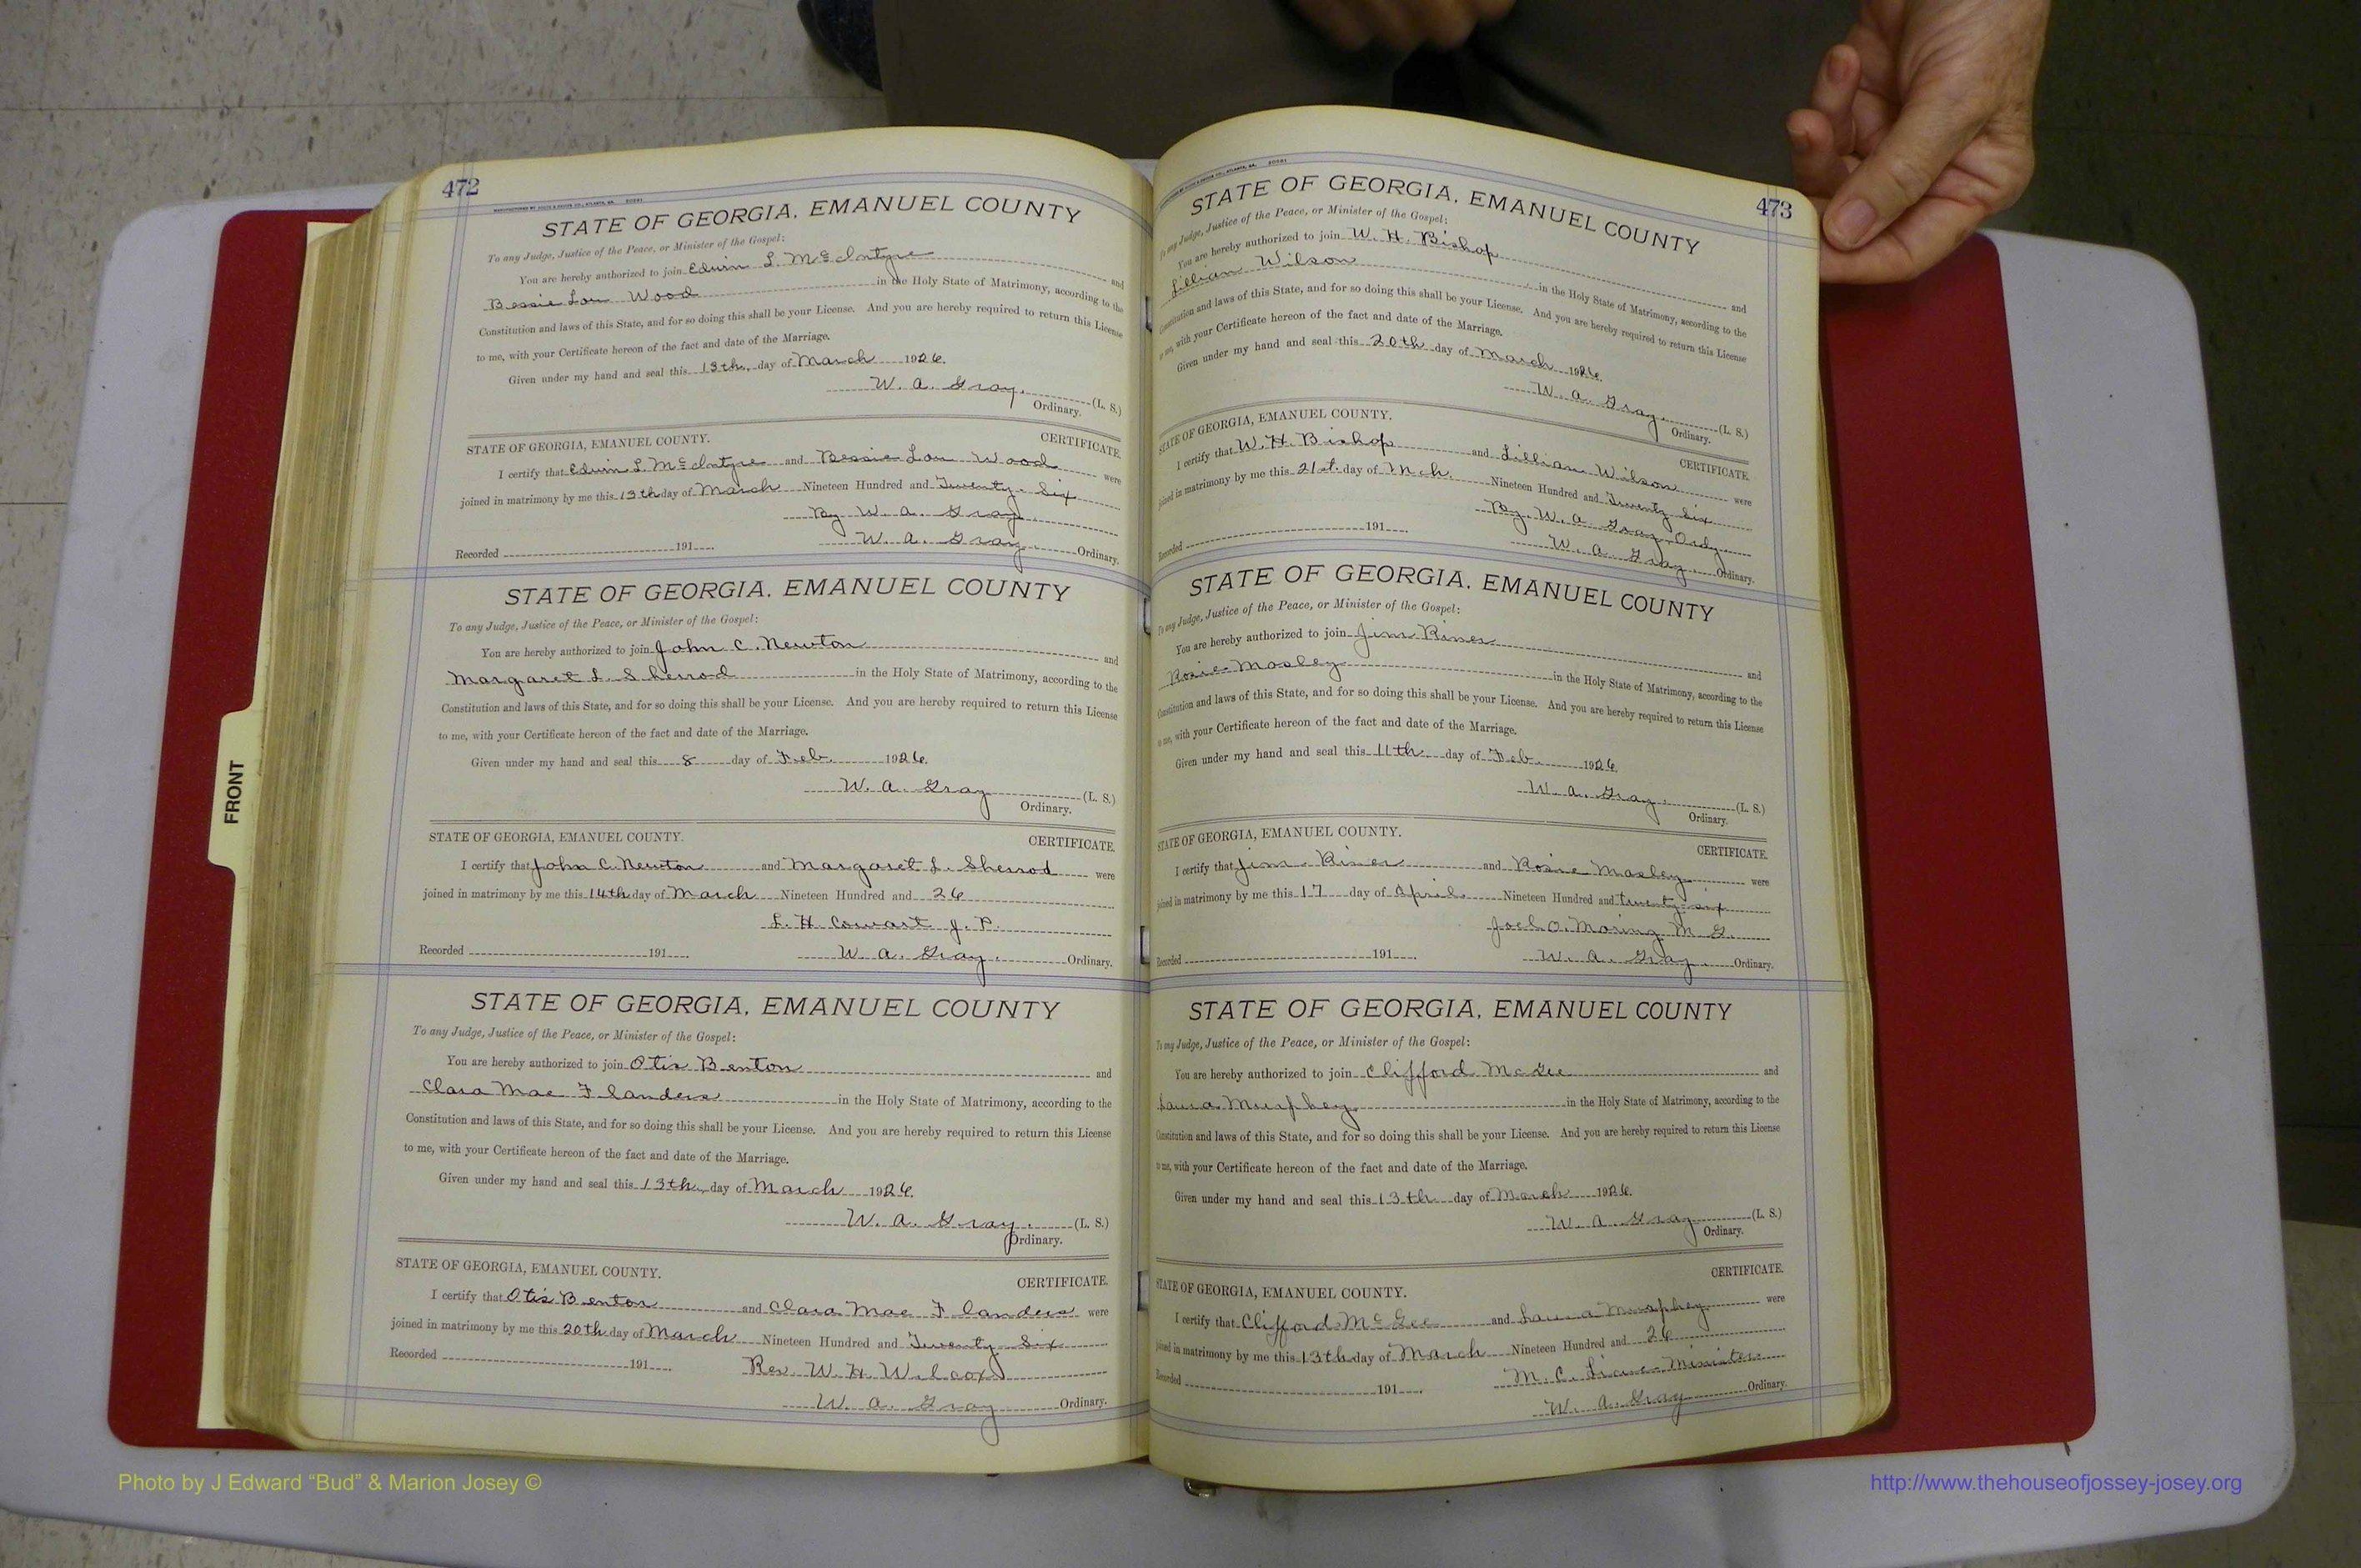 472
STATE OF GEORGIA, EMANUEL COUNTY
To any Judge, Justice of the Peace, or Minister of the Gospel:
You are hereby authorized to join Edwin L. McIntyre and
Bessie Lou Wood in the Holy State of Matrimony, according to the
Constitution and laws of this State, and for so doing this shall be your License. And you are hereby required to return this License
to me, with your Certificate hereon of the fact and date of the Marriage.
Given under my hand and seal this 13th. day of March 1926.
W. A. Gray. (L. S.)
Ordinary.
STATE OF GEORGIA, EMANUEL COUNTY. CERTIFICATE.
I certify that Edwin L. McIntyre and Bessie Lou Wood were
joined in matrimony by me this 13th day of March Nineteen Hundred and Twenty-Six
By W. A. Gray.
Recorded 191 W. A. Gray Ordinary.
STATE OF GEORGIA, EMANUEL COUNTY
To any Judge, Justice of the Peace, or Minister of the Gospel:
You are hereby authorized to join John C. Newton and
Margaret L. Sherrod in the Holy State of Matrimony, according to the
Constitution and laws of this State, and for so doing this shall be your License. And you are hereby required to return this License
to me, with your Certificate hereon of the fact and date of the Marriage.
Given under my hand and seal this 8 day of Feb. 1926.
W. A. Gray (L. S.)
Ordinary.
STATE OF GEORGIA, EMANUEL COUNTY. CERTIFICATE.
I certify that John C. Newton and Margaret L. Sherrod were
joined in matrimony by me this 14th day of March Nineteen Hundred and 26
L. H. Cowart J. P.
Recorded 191 W. A. Gray. Ordinary.
STATE OF GEORGIA, EMANUEL COUNTY
To any Judge, Justice of the Peace, or Minister of the Gospel:
You are hereby authorized to join Otis Benton and
Clara Mae Flanders in the Holy State of Matrimony, according to the
Constitution and laws of this State, and for so doing this shall be your License. And you are hereby required to return this License
to me, with your Certificate hereon of the fact and date of the Marriage.
Given under my hand and seal this 13th. day of March 1926.
W. A. Gray. (L. S.)
Ordinary.
STATE OF GEORGIA, EMANUEL COUNTY.
CERTIFICATE.
I certify that Otis Benton and Clara Mae Flanders were
joined in matrimony by me this 20th day of March Nineteen Hundred and Twenty Six
Recorded 191 Rev. W. H. Wilcox
W. A. Gray Ordinary.
473
STATE OF GEORGIA, EMANUEL COUNTY
To any Judge, Justice of the Peace, or Minister of the Gospel:
You are hereby authorized to join W. H. Bishop and
Lillian Wilson in the Holy State of Matrimony, according to the
Constitution and laws of this State, and for so doing this shall be your License. And you are hereby required to return this License
to me, with your Certificate hereon of the fact and date of the Marriage.
Given under my hand and seal this 20th day of March 1926.
W. A. Gray. (L. S.)
Ordinary.
STATE OF GEORGIA, EMANUEL COUNTY.
CERTIFICATE.
I certify that W. H. Bishop and Lillian Wilson were
joined in matrimony by me this 21st. day of Mch. Nineteen Hundred and Twenty Six
By. W. A. Gray Ordy
Recorded 191 W. A. Gray Ordinary.
STATE OF GEORGIA, EMANUEL COUNTY
To any Judge, Justice of the Peace, or Minister of the Gospel:
You are hereby authorized to join Jim Riner and
Rosie Mosley in the Holy State of Matrimony, according to the
Constitution and laws of this State, and for so doing this shall be your License. And you are hereby required to return this License
to me, with your Certificate hereon of the fact and date of the Marriage.
Given under my hand and seal this 11th. day of Feb. 1926.
W. A. Gray. (L. S.)
Ordinary.
STATE OF GEORGIA, EMANUEL COUNTY.
CERTIFICATE.
I certify that Jim Riner and Rosie Mosley were
joined in matrimony by me this 17 day of April Nineteen Hundred and twenty-six
Joel O. Moring M. G.
Recorded 191 W. A. Gray Ordinary.
STATE OF GEORGIA, EMANUEL COUNTY
To any Judge, Justice of the Peace, or Minister of the Gospel:
You are hereby authorized to join Clifford McGee and
Laura Murphey in the Holy State of Matrimony, according to the
Constitution and laws of this State, and for so doing this shall be your License. And you are hereby required to return this License
to me, with your Certificate hereon of the fact and date of the Marriage.
Given under my hand and seal this 13th day of March 1926.
W. A. Gray (L. S.)
Ordinary.
CERTIFICATE.
STATE OF GEORGIA, EMANUEL COUNTY.
I certify that Clifford McGee and Laura Murphey were
joined in matrimony by me this 13th day of March Nineteen Hundred and 26
M. C. Minister
Recorded 191
W. A. Gray Ordinary.
FRONT
Photo by J Edward “Bud” & Marion Josey ©
http://www.thehouseofjossey-josey.org